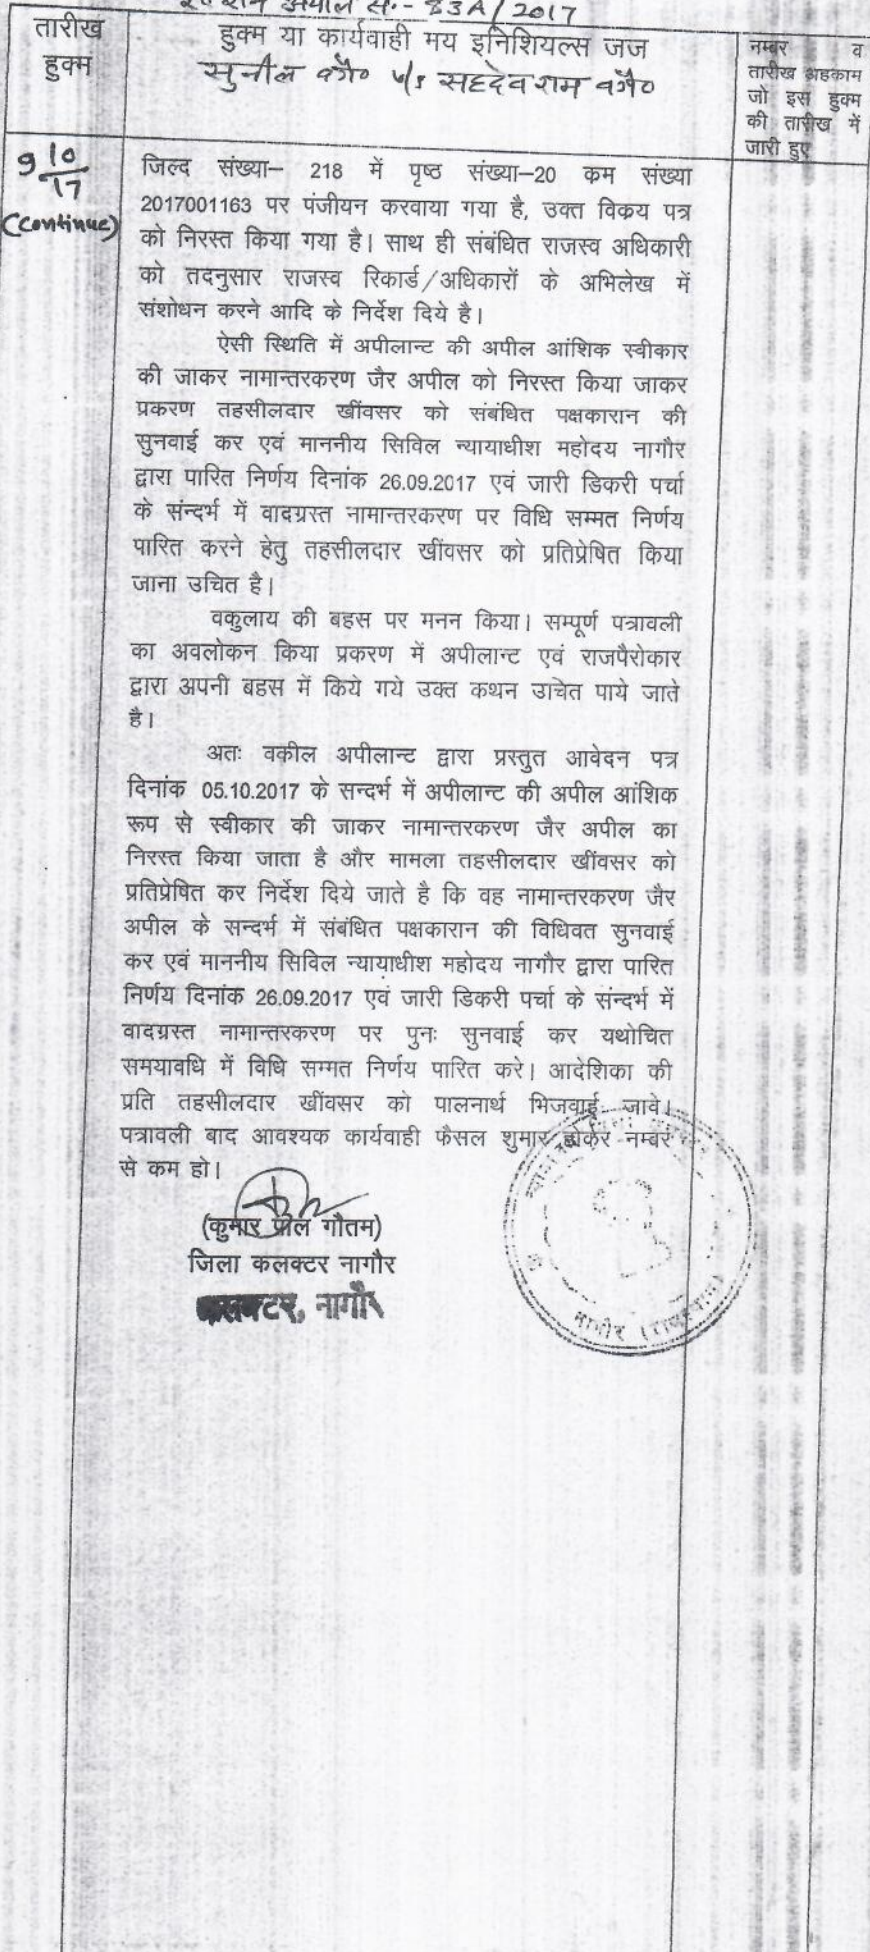 अपील सं.- 83A/2017
तारीख
हुक्म
हुक्म या कार्यवाही मय इनिशियल्स जज
सुनील वगै० v/s सहदेवराम वगै०
नम्बर व
तारीख अहकाम
जो इस हुक्म
की तारीख में
जारी हुए
9 10/17
(Continue)
जिल्द संख्या– 218 में पृष्ठ संख्या–20 कम संख्या
2017001163 पर पंजीयन करवाया गया है, उक्त विकय पत्र
को निरस्त किया गया है। साथ ही संबंधित राजस्व अधिकारी
को तदनुसार राजस्व रिकार्ड/अधिकारों के अभिलेख में
संशोधन करने आदि के निर्देश दिये है।
ऐसी स्थिति में अपीलान्ट की अपील आंशिक स्वीकार
की जाकर नामान्तरकरण जैर अपील को निरस्त किया जाकर
प्रकरण तहसीलदार खींवसर को संबंधित पक्षकारान की
सुनवाई कर एवं माननीय सिविल न्यायाधीश महोदय नागौर
द्वारा पारित निर्णय दिनांक 26.09.2017 एवं जारी डिकरी पर्चा
के संन्दर्भ में वादग्रस्त नामान्तरकरण पर विधि सम्मत निर्णय
पारित करने हेतु तहसीलदार खींवसर को प्रतिप्रेषित किया
जाना उचित है।
वकुलाय की बहस पर मनन किया। सम्पूर्ण पत्रावली
का अवलोकन किया प्रकरण में अपीलान्ट एवं राजपैरोकार
द्वारा अपनी बहस में किये गये उक्त कथन उचित पाये जाते
है।
अतः वकील अपीलान्ट द्वारा प्रस्तुत आवेदन पत्र
दिनांक 05.10.2017 के सन्दर्भ में अपीलान्ट की अपील आंशिक
रूप से स्वीकार की जाकर नामान्तरकरण जैर अपील का
निरस्त किया जाता है और मामला तहसीलदार खींवसर को
प्रतिप्रेषित कर निर्देश दिये जाते है कि वह नामान्तरकरण जैर
अपील के सन्दर्भ में संबंधित पक्षकारान की विधिवत सुनवाई
कर एवं माननीय सिविल न्यायाधीश महोदय नागौर द्वारा पारित
निर्णय दिनांक 26.09.2017 एवं जारी डिकरी पर्चा के संन्दर्भ में
वादग्रस्त नामान्तरकरण पर पुनः सुनवाई कर यथोचित
समयावधि में विधि सम्मत निर्णय पारित करे। आदेशिका की
प्रति तहसीलदार खींवसर को पालनार्थ भिजवाई जावे।
पत्रावली बाद आवश्यक कार्यवाही फैसल शुमार होकर नम्बर
से कम हो।
(कुमार पाल गौतम)
जिला कलक्टर नागौर
कलक्टर, नागौर
नागौर (राजस्थान)